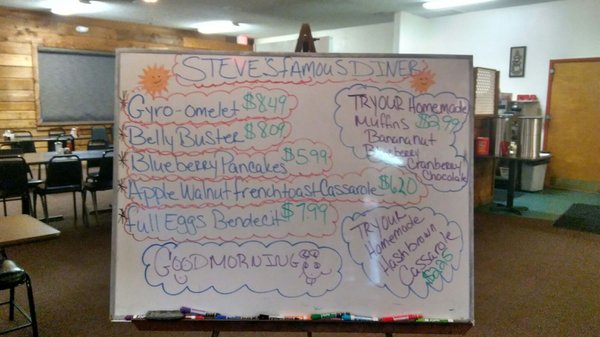 STEVE'S famous DINER
Gyro-omelet $8.49
Belly Buster $8.09
Blueberry Pancakes $5.99
Apple Walnut french toast Cassarole $6.20
full Eggs Bendecit $7.99
GOOD MORNING
TRY OUR Homemade
Muffins $2.99
Banana nut
Blueberry
Cranberry
Chocolate
TRY OUR
Homemade
Hashbrown
Cassarole
$2.25